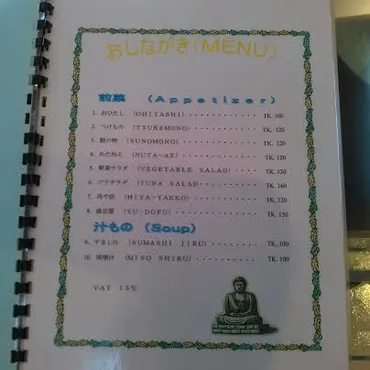 おしながき(MENU)
前菜 (Appetizer)
1. おひたし (OHITASHI) ・・・・・・・・・・・ TK. 100
2. つけもの (TSUKEMONO) ・・・・・・・・・・ TK. 120
3. 酢の物 (SUNOMONO) ・・・・・・・・・・・ TK. 120
4. ぬた和え (NUTA-AE) ・・・・・・・・・・・ TK. 120
5. 野菜サラダ (VEGETABLE SALAD) ・・・・・ TK. 120
6. ツナサラダ (TUNA SALAD) ・・・・・・・・ TK. 160
7. 冷や奴 (HIYA-YAKKO) ・・・・・・・・・・ TK. 120
8. 湯豆腐 (YU-DOFU) ・・・・・・・・・・・ TK. 150
汁もの (Soup)
9. すまし汁 (SUMASHI JIRU) ・・・・・・・・ TK. 100
10. 味噌汁 (MISO SHIRU) ・・・・・・・・・・ TK. 100
VAT 15%